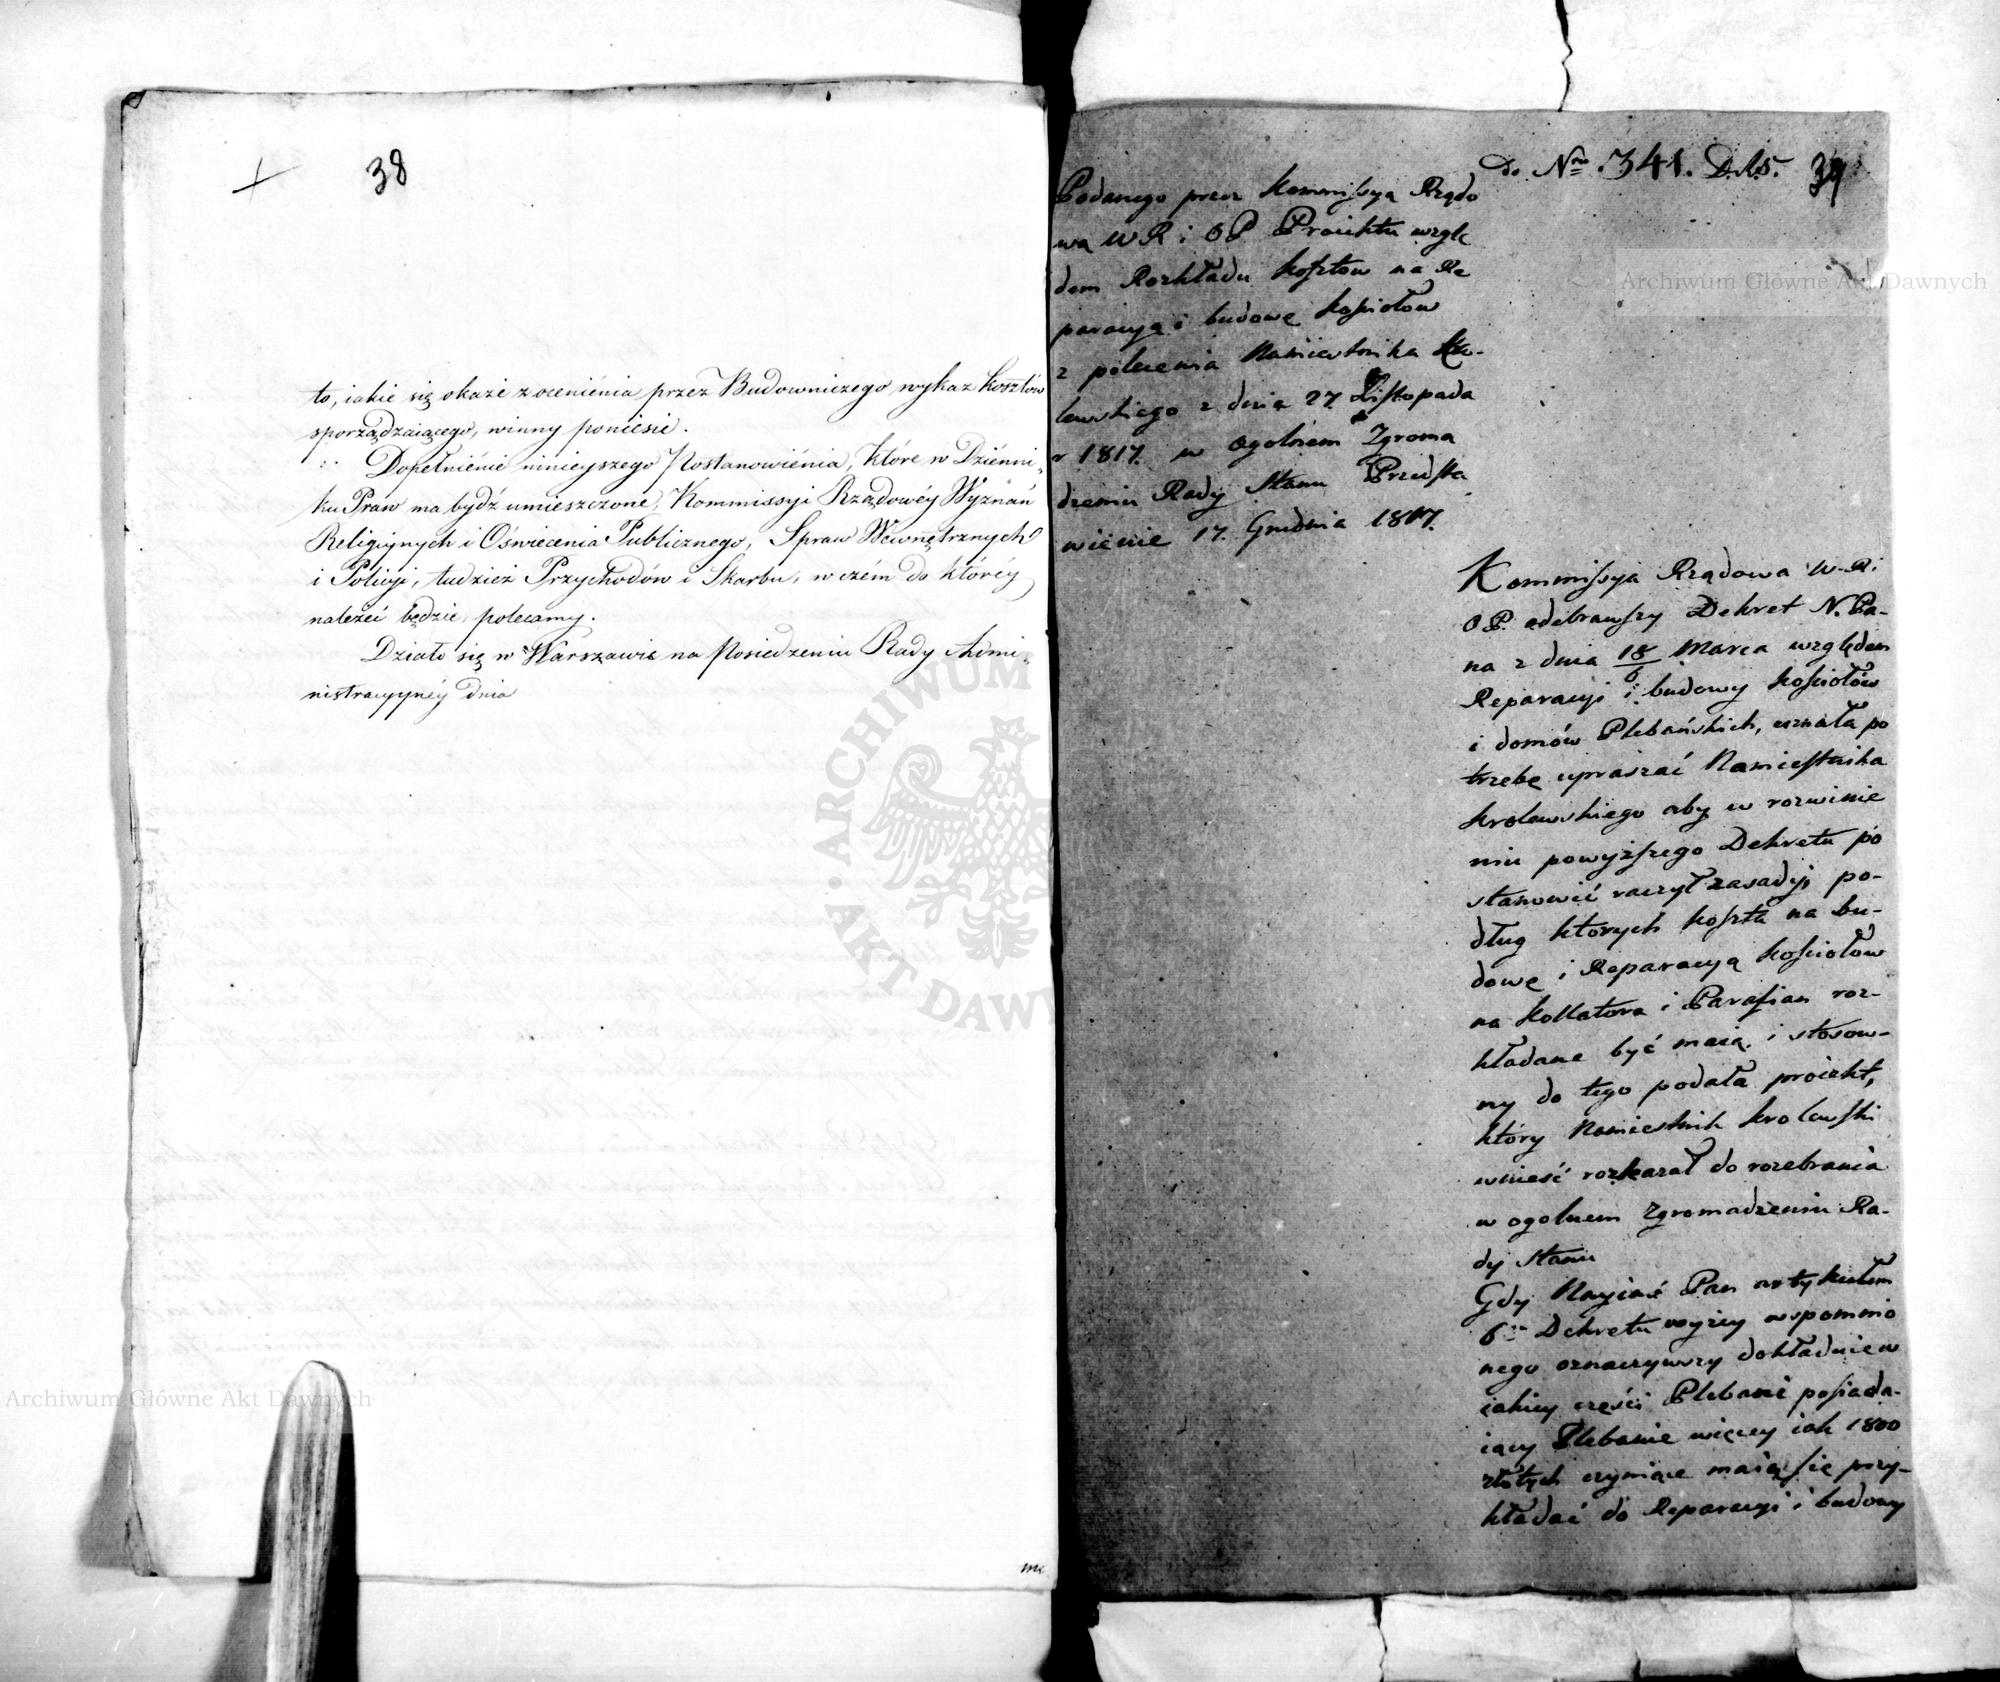 38
to, iakie się okaże z ocenienia przez Budowniczego wykaz kosztów
sporządzaiącego, winny ponieśie.
Dopełnienie ninieyszego Postanowienia, które w Dzienni-
ku Praw ma bydź umieszczone, Kommissyi Rządowéy Wyznań
Religiynych i Oświecenia Publicznego, Spraw Wewnętrznych
i Policyi, tudzież Przychodów i Skarbu, w czém do któréy
należeć będzie, polecamy.
Działo się w Warszawie na Posiedzeniu Rady Admi-
nistracyynéy dnia
do Nro 341. D.K.S. 39
Podanego przez Kommissyą Rządo
wą W R i O P Proiektu wzglę
dem Rozkładu kosztow na Re
paracyą i budowę kościołow
z polecenia Namiestnika Kro-
lewskiego z dnia 27 Listopada
r 1817. w Ogolnem Zgroma
dzeniu Rady Stanu Przedsta
wienie 17. Grudnia 1817.
Kommissyja Rządowa W. R. i
O P. odebrawszy Dekret N. Pa-
na z dnia 18/6 Marca względem
Reparacyi i budowy kościołów
i domów Plebańskich, uznała po
trzebę upraszać Namiestnika
krolewskiego aby w rozwinie
niu powyższego Dekretu po
stanowić raczył zasady, po-
dług których koszta na bu-
dowę i Reparacyą kościołow
na kollatora i Parafian roz-
kładane być maią, i stosow-
ny do tego podała proiekt,
który Namiestnik krolewski
wnieść rozkazał do rozebrania
w ogolnem Zgromadzeniu Ra-
dy Stanu
Gdy Nayiaś Pan artykułem
6m Dekretu wyżey wspomnio
nego oznaczywszy dokładnie w
iakiey części Plebani posiada-
iący Plebanie więcey iak 1800
złotych czyniące maią się przy-
kładać do Reparacyi i budowy
Archiwum Główne Akt Dawnych
Archiwum Główne Akt Dawnych
ARCHIWUM
AKT DAWN